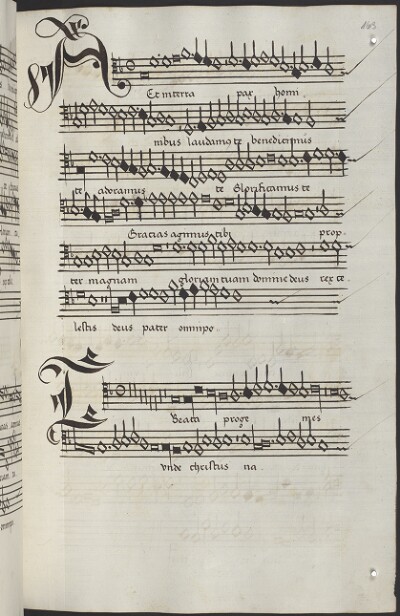 165
Et in terra pax homi
nibus laudamus te benedicimus
te adoramus te Glorificamus te
Gracias agimus tibi prop
ter magnam gloriam tuam domine deus rex ce
lestis deus pater omnipo
Beata proge nies
vnde christus na